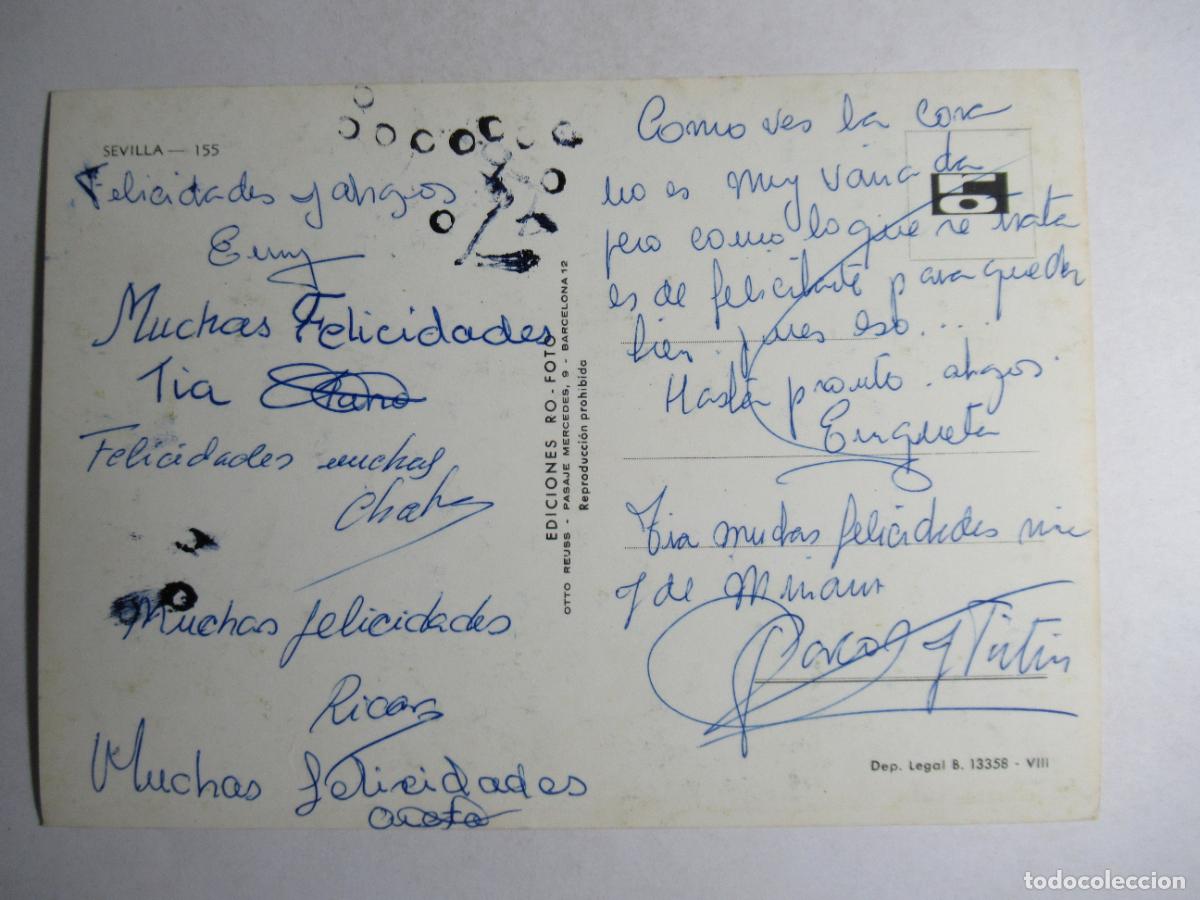 SEVILLA — 155
Felicidades y abrazos
Emy
Muchas Felicidades
Tia
Felicidades muchas
Muchas felicidades
Ricar
Muchas felicidades
EDICIONES RO-FOTO
OTTO REUSS - PASAJE MERCEDES, 9 - BARCELONA 12
Reproducción prohibida
Como ves la cosa
no es muy variada
pero como lo que se trata
es de felicitarte para quedar
bien pues eso....
Hasta pronto. abrazos.
Enriqueta
Tia muchas felicidades
y de
y Tintin
Dep. Legal B. 13358 - VIII
todocoleccion